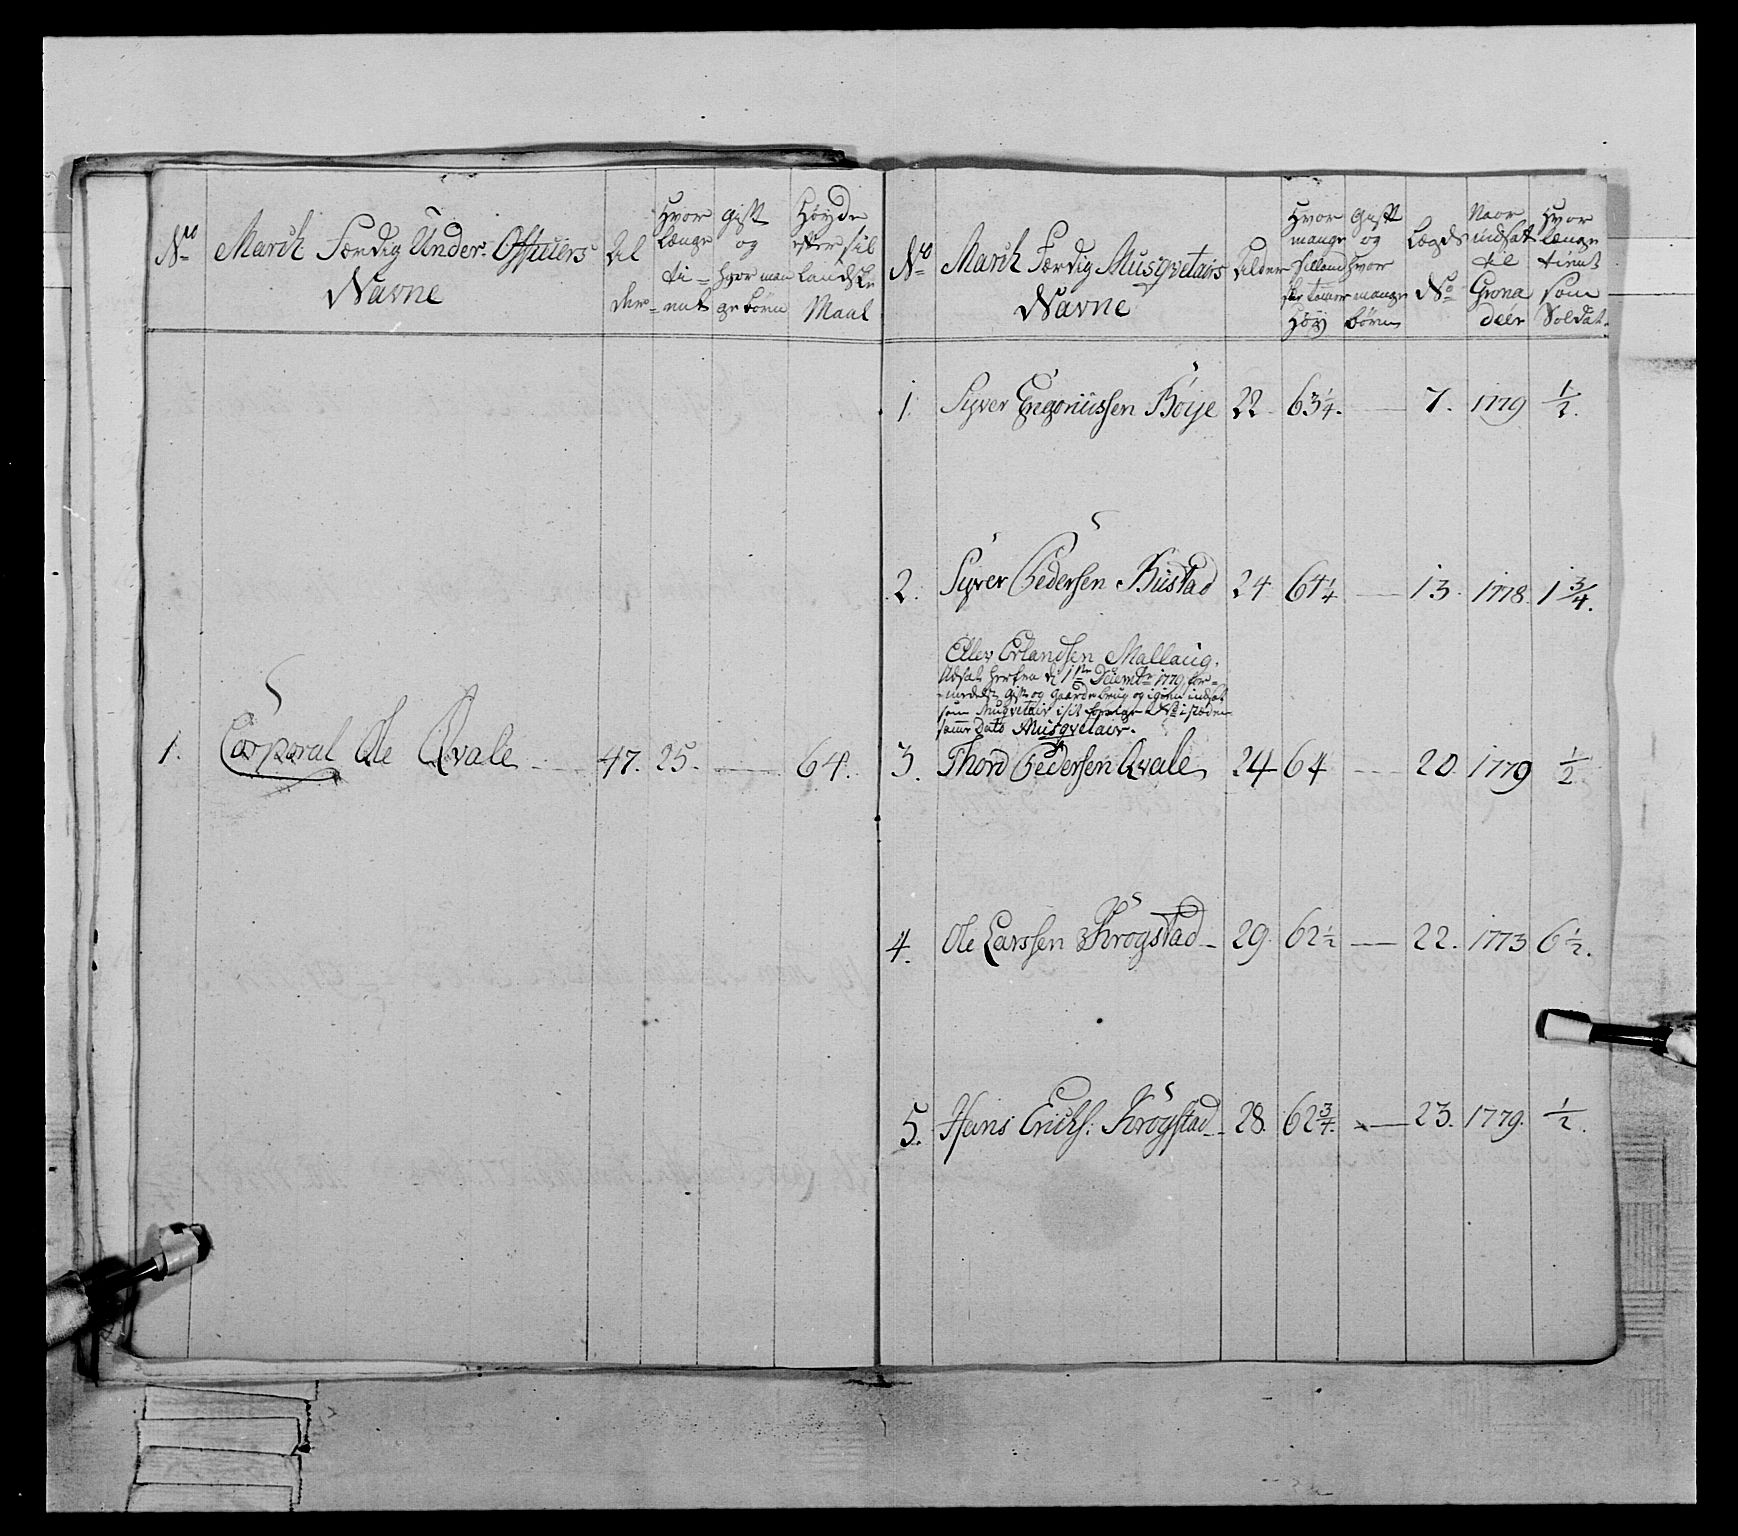 No
March Færdig Under-Officiers
Navne
Al
der
Hvor
længe
ti-
ent
gift
og
hvor man
ge børn
Høyde
efter sil
landske
Maal
1. Corporal Ole Qvale 47. 25. 64.
No
March Færdig Musqvetairs
Navne
Alder
Hvor
mange
Høy
gift
og
hvor
mange
børn
Lægds
No
Naar
indsat
til
Grena
deer
Hvor
længe
tient
som
Soldat.
1. Syver Gregoriussen Böye 22 63 1/4. 7. 1779 1/2.
2. Syver Pedersen Bustad 24 64 1/4 13. 1778. 1 3/4.
Ellev Erlandsen Mallaug.
Udsat herfra d 1ste Decembr 1779 for-
medelst gift og gaardebrug og igien indsat
som Musqvetair i sit
samme Dato Musqvetair.
3. Thord Pedersen Qvale 24 64 20. 1779 1/2
4. Ole Larssen Krogstad 29. 62 1/2 22. 1773 6 1/2.
5. Hans Erichs: Krogstad 28. 62 3/4. 23. 1779. 1/2.